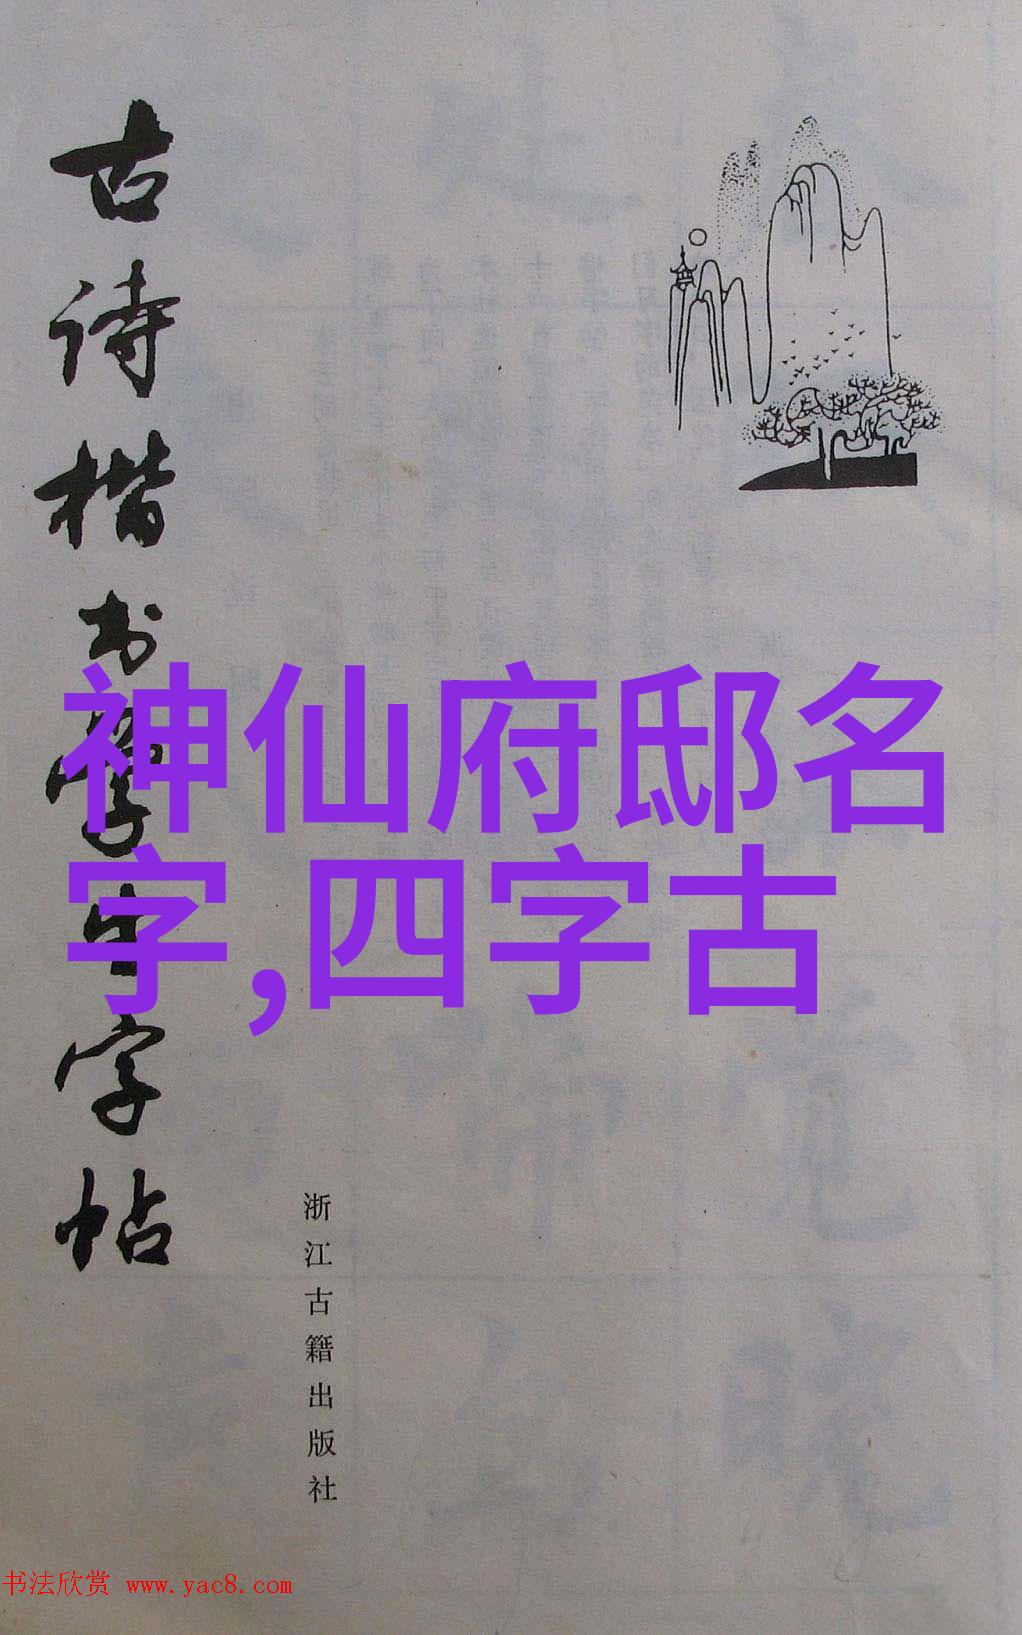 古诗楷书学生字帖
神仙府邸名
字,四字古
浙江古籍出版社
书法欣赏 www.yac8.com